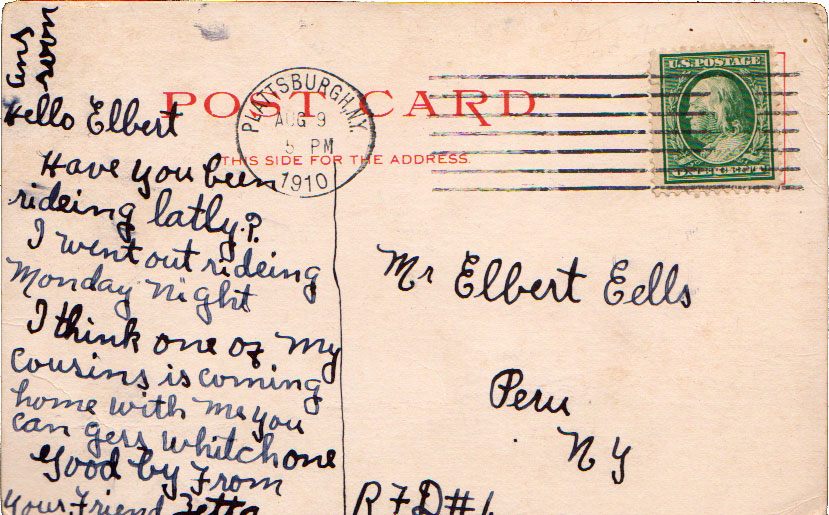 ans
soon
POST CARD
THIS SIDE FOR THE ADDRESS.
PLATTSBURGH, N.Y.
AUG 9
5 PM
1910
U.S. POSTAGE
ONE CENT
Hello Elbert
Have you been
rideing latly?
I went out rideing
Monday Night
I think one of my
cousins is coming
home with me you
can gess whitch one
Good by From
your Friend Zetta
Mr Elbert Eells
Peru
N Y
R F D # 1.